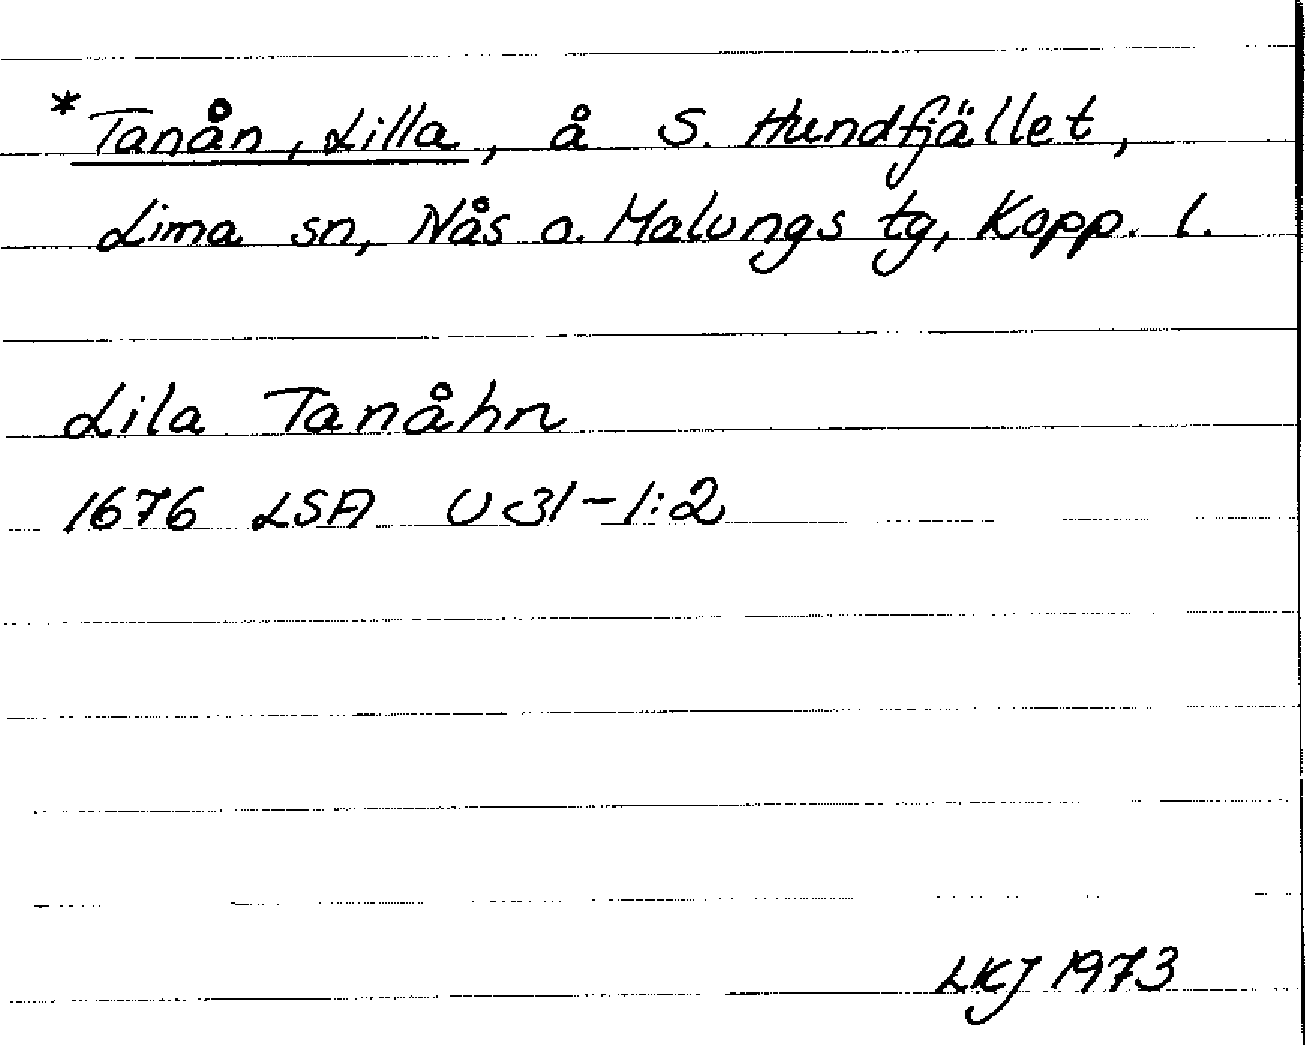 *Tanån, Lilla, å S. Hundfjället,
Lima sn, Nås o. Malungs tg, Kopp. l.
Lila Tanåhn
1676 LSA U31-1:2
LKJ 1973